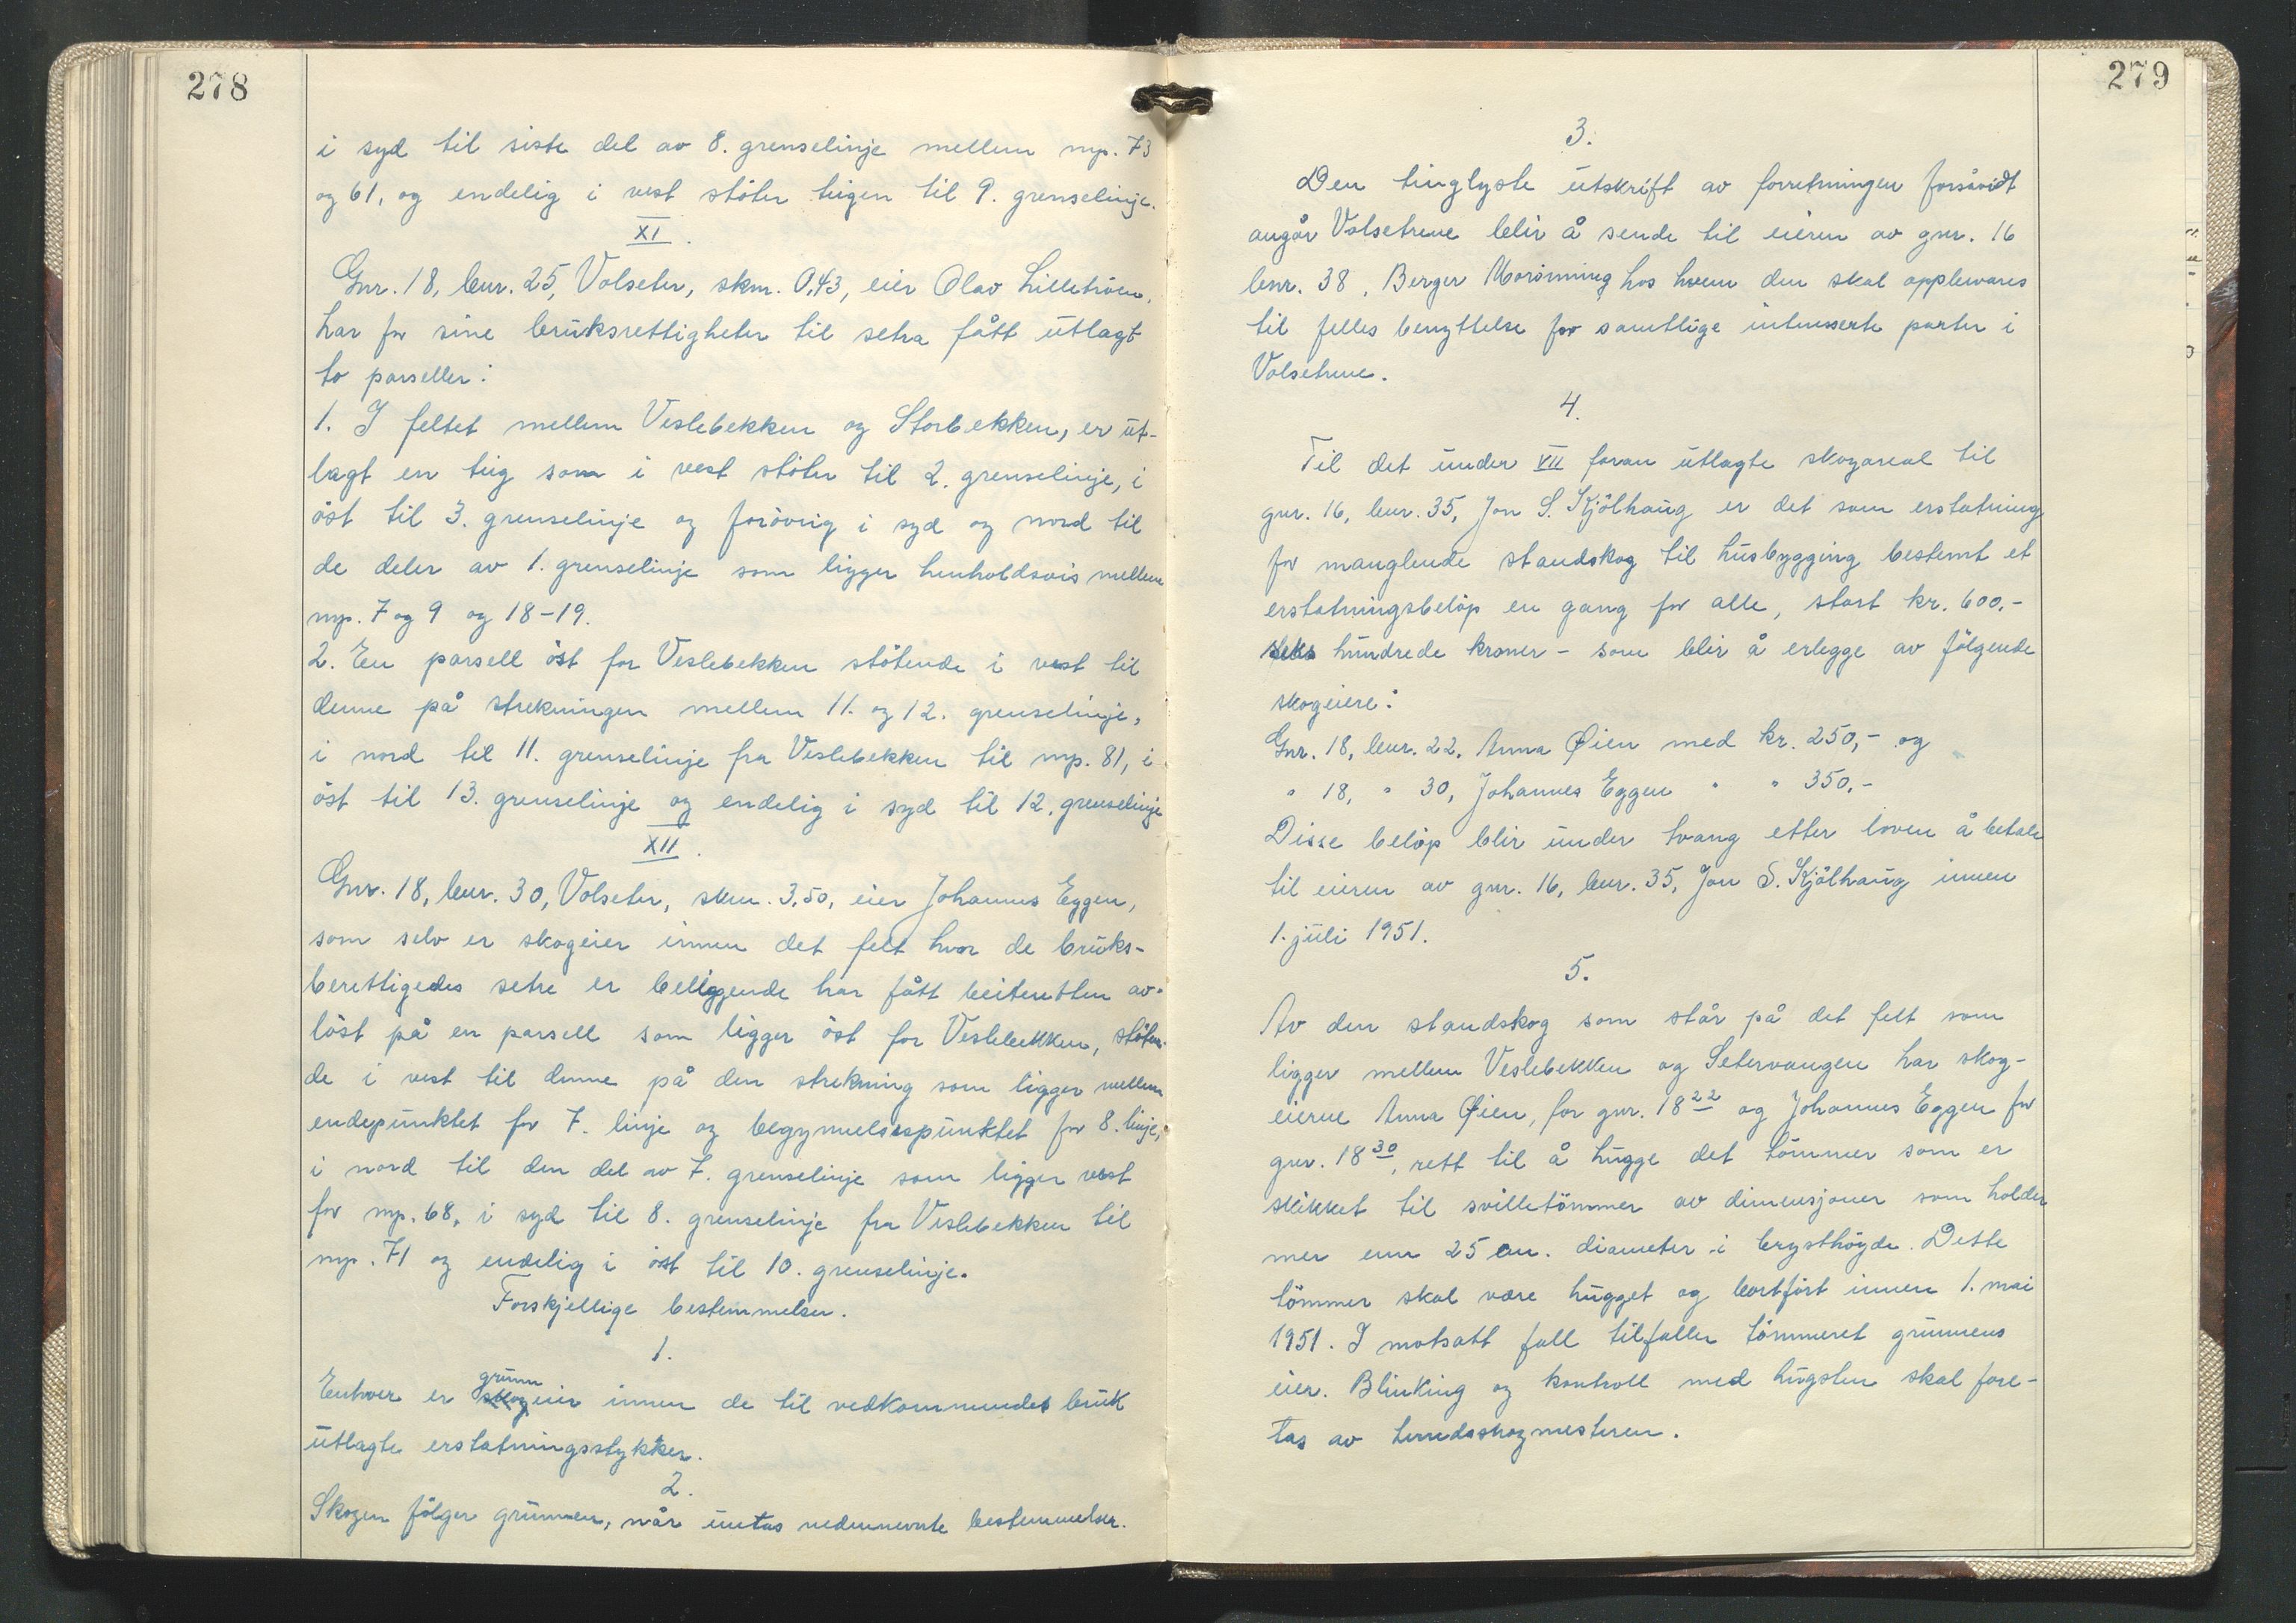 278
i syd til siste del av 8. grenselinje mellem mp. 73
og 61, og endelig i vest støter teigen til 9. grenselinje.
XI.
Gnr. 18, bnr. 25, Volseter, skm. 0,43, eier Olav Lilletrøen,
har for sine bruksrettigheter til setra fått utlagt
to parseller:
1. I feltet mellem Veslebekken og Storbekken, er ut-
lagt en teig som i vest støter til 2. grenselinje, i
öst til 3. grenselinje og forøvrig i syd og nord til
de deler av 1. grenselinje som ligger henholdsvis mellem
mp. 7 og 9 og 18-19.
2. En parsell öst for Veslebekken stötende i vest til
denne på strekningen mellem 11. og 12. grenselinje,
i nord til 11. grenselinje fra Veslebekken til mp. 81, i
öst til 13. grenselinje og endelig i syd til 12. grenselinje
XII.
Gnr. 18, bnr. 30, Volseter, skm. 3,50, eier Johannes Eggen,
som selv er skogeier innen det felt hvor de bruks-
berettigedes setre er beliggende har fått beiteretten av-
löst på en parsell som ligger öst for Veslebekken, støten-
de i vest til denne på den strekning som ligger mellem
endepunktet for 7. linje og begynnelsespunktet for 8. linje,
i nord til den del av 7. grenselinje som ligger vest
for mp. 68, i syd til 8. grenselinje fra Veslebekken til
mp. 71 og endelig i öst til 10. grenselinje.
Forskjellige bestemmelser.
1.
grunn
Enhver er skogeier innen de til vedkommendes bruk
utlagte erstatningsstykker.
2.
Skogen fölger grunnen, når untas nedennevnte bestemmelser.
279
3.
Den tinglyste utskrift av forretningen forsåvidt
angår Volsetrene blir å sende til eieren av gnr. 16
bnr. 38, Berger hos hvem den skal oppbevares
til felles benyttelse for samtlige interesserte parter i
Volsetrene.
4.
Til det under VII foran utlagte skogareal til
gnr. 16, bnr. 35, Jon S. Kjölhaug er det som erstatning
for manglende standskog til husbygging bestemt et
erstatningsbelöp en gang for alle, stort kr. 600,-
seks hundrede kroner - som blir å erlegge av fölgende
skogeiere:
Gnr. 18, bnr. 22, Anna Øien med kr. 250,- og
" 18, " 30, Johannes Eggen " " 350,-
Disse belöp blir under tvang etter loven å betale
til eieren av gnr. 16, bnr. 35, Jon S. Kjölhaug innen
1. juli 1951.
5.
Av den standskog som står på det felt som
ligger mellem Veslebekken og Setervangen har skog-
eierne Anna Øien, for gnr. 18 22 og Johannes Eggen for
gnr. 18 30, rett til å hugge det tömmer som er
skikket til svilletömmer av dimensjoner som holder
mer enn 25 cm. diameter i brysthöyde. Dette
tömmer skal være hugget og bortfört innen 1. mai
1951. I motsatt fall tilfaller tömmeret grunnens
eier. Blinking og kontroll med hugsten skal fore-
tas av herredsskogmesteren.